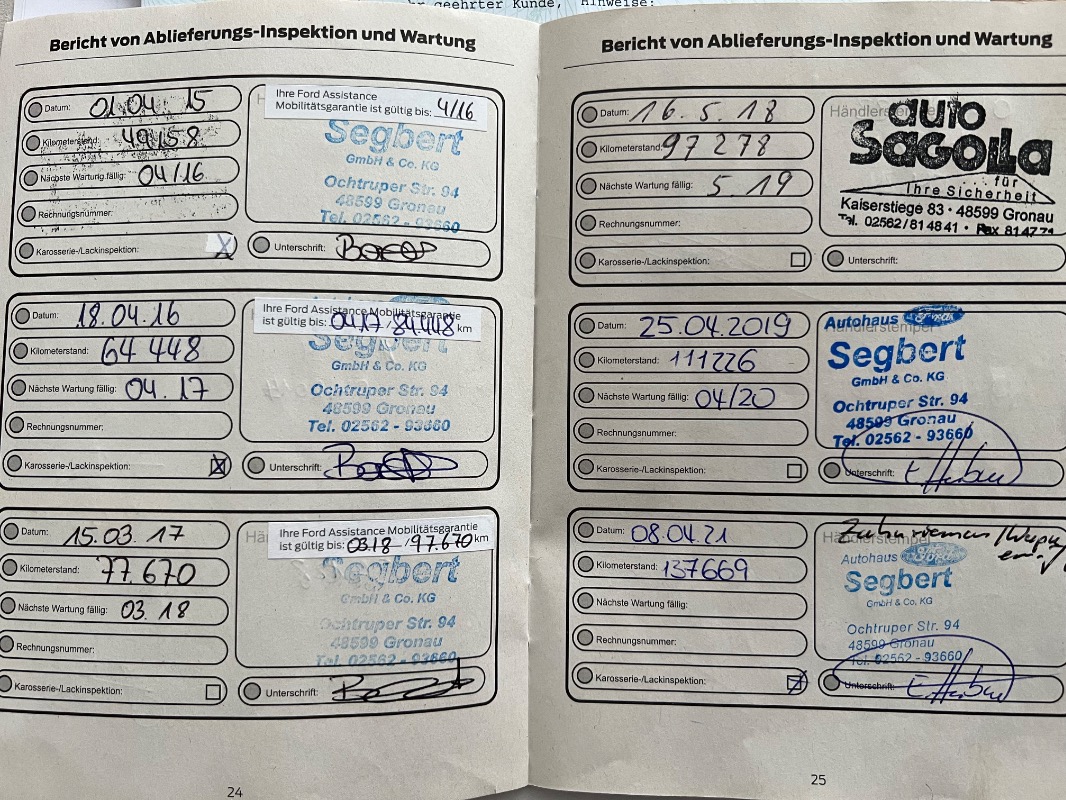 geehrter Kunde, Hinweise:
Bericht von Ablieferungs-Inspektion und Wartung
Datum: 01.04.15
Kilometerstand:
Nächste Wartung fällig: 04/16
Rechnungsnummer:
Karosserie-/Lackinspektion: X
Ihre Ford Assistance
Mobilitätsgarantie ist gültig bis: 4/16
Segbert
GmbH & Co. KG
Ochtruper Str. 94
48599 Gronau
Tel. 02562 - 93660
Unterschrift:
Datum: 18.04.16
Kilometerstand: 64 448
Nächste Wartung fällig: 04.17
Rechnungsnummer:
Karosserie-/Lackinspektion: X
Ihre Ford Assistance Mobilitätsgarantie
ist gültig bis: 04.17 / 84448 km
Segbert
GmbH & Co. KG
Ochtruper Str. 94
48599 Gronau
Tel. 02562 - 93660
Unterschrift:
Datum: 15.03.17
Kilometerstand: 77.670
Nächste Wartung fällig: 03.18
Rechnungsnummer:
Karosserie-/Lackinspektion:
Ihre Ford Assistance Mobilitätsgarantie
ist gültig bis: 03.18 / 97.670 km
Segbert
GmbH & Co. KG
Ochtruper Str. 94
48599 Gronau
Tel. 02562 - 93660
Unterschrift:
24
Bericht von Ablieferungs-Inspektion und Wartung
Datum: 16.5.18
Kilometerstand: 97278
Nächste Wartung fällig: 5 19
Rechnungsnummer:
Karosserie-/Lackinspektion:
Händlerstempel
auto
SAGOLLA
... für
Ihre Sicherheit
Kaiserstiege 83 • 48599 Gronau
Tel. 02562/81 48 41 • Fax 81 47 71
Unterschrift:
Datum: 25.04.2019
Kilometerstand: 111226
Nächste Wartung fällig: 04/20
Rechnungsnummer:
Karosserie-/Lackinspektion:
Händlerstempel
Autohaus Ford
Segbert
GmbH & Co. KG
Ochtruper Str. 94
48599 Gronau
Tel. 02562 - 93660
Unterschrift:
Datum: 08.04.21
Kilometerstand: 137669
Nächste Wartung fällig:
Rechnungsnummer:
Karosserie-/Lackinspektion: X
Zahnriemen /
Händlerstempel
Autohaus Ford
Segbert
GmbH & Co. KG
Ochtruper Str. 94
48599 Gronau
Tel. 02562 - 93660
Unterschrift:
25